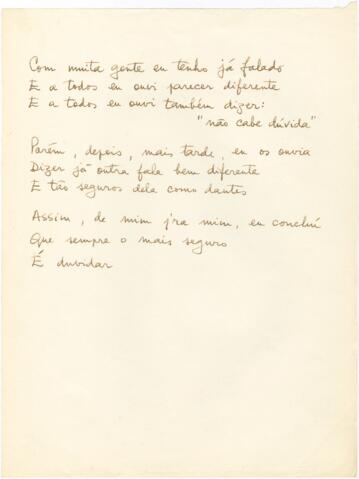 Com muita gente eu tenho já falado
E a todos eu ouvi parecer diferente
E a todos eu ouvi também dizer:
"não cabe dúvida"
Parém, depois, mais tarde, eu os ouvia
Dizer já outra fala bem diferente
E tão seguros dela como dantes
Assim, de mim p'ra mim, eu concluí
Que sempre o mais seguro
É duvidar